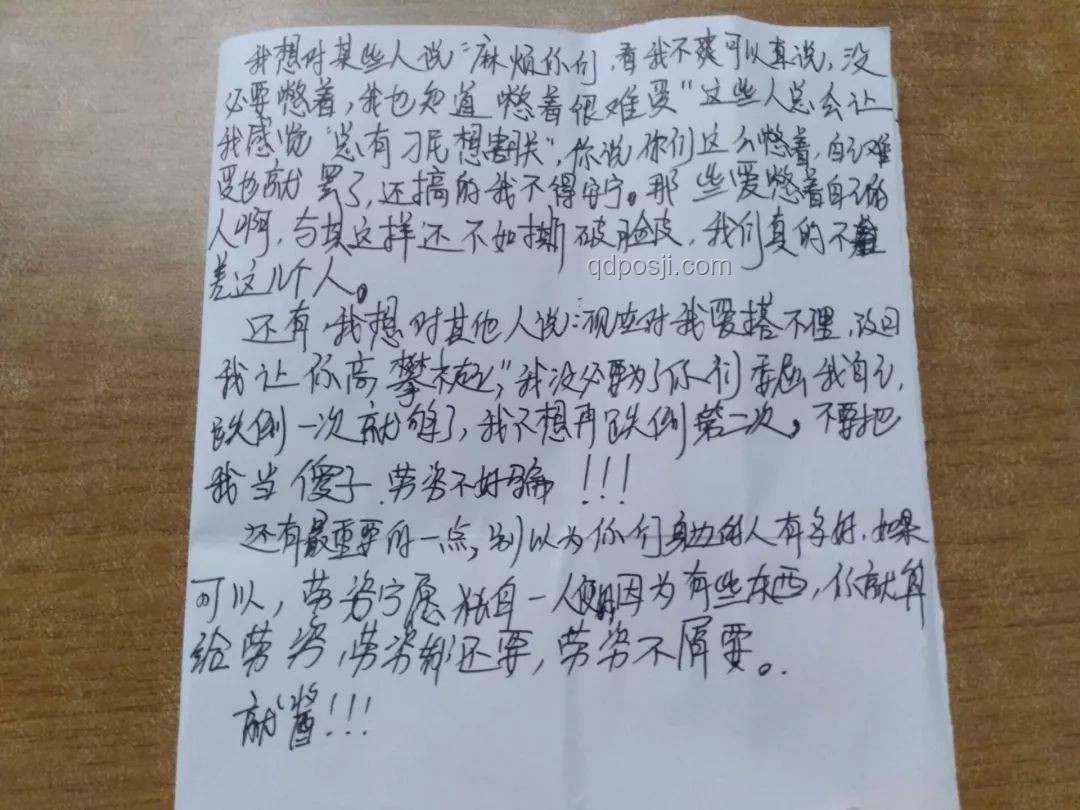 我想对某些人说“麻烦你们,看我不爽可以直说,没
必要憋着,我也知道憋着很难受”这些人总会让
我感觉“总有刁民想害朕”,你说你们这么憋着,自己难
受也就罢了,还搞的我不得安宁。那些爱憋着自己的
人啊,与其这样还不如撕破脸皮,我们真的不
差这几个人。
qdposji.com
还有,我想对其他人说:“现在对我爱搭不理,改日
我让你高攀不起”,我没必要为了你们委屈我自己,
跌倒一次就够了,我不想再跌倒第二次。不要把
我当傻子,劳资不好骗!!!
还有最重要的一点,别以为你们身边的人有多好,如果
可以,劳资宁愿独自一人 因为有些东西,你就算
给劳资,劳资 还要,劳资不屑要。
就酱!!!